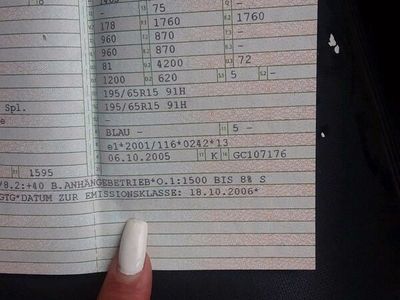 1465 - -
75
178 1760 8.2 1760
960 870 -
960 870 -
81 4200 72
1200 620 5 -
195/65R15 91H
Spl. 195/65R15 91H
e -
BLAU - 5 -
e1*2001/116*0242*13
06.10.2005 K GC107176
1595
/8.2:+40 B.ANHÄNGEBETRIEB*O.1:1500 BIS 8% S
GTG*DATUM ZUR EMISSIONSKLASSE: 18.10.2006*